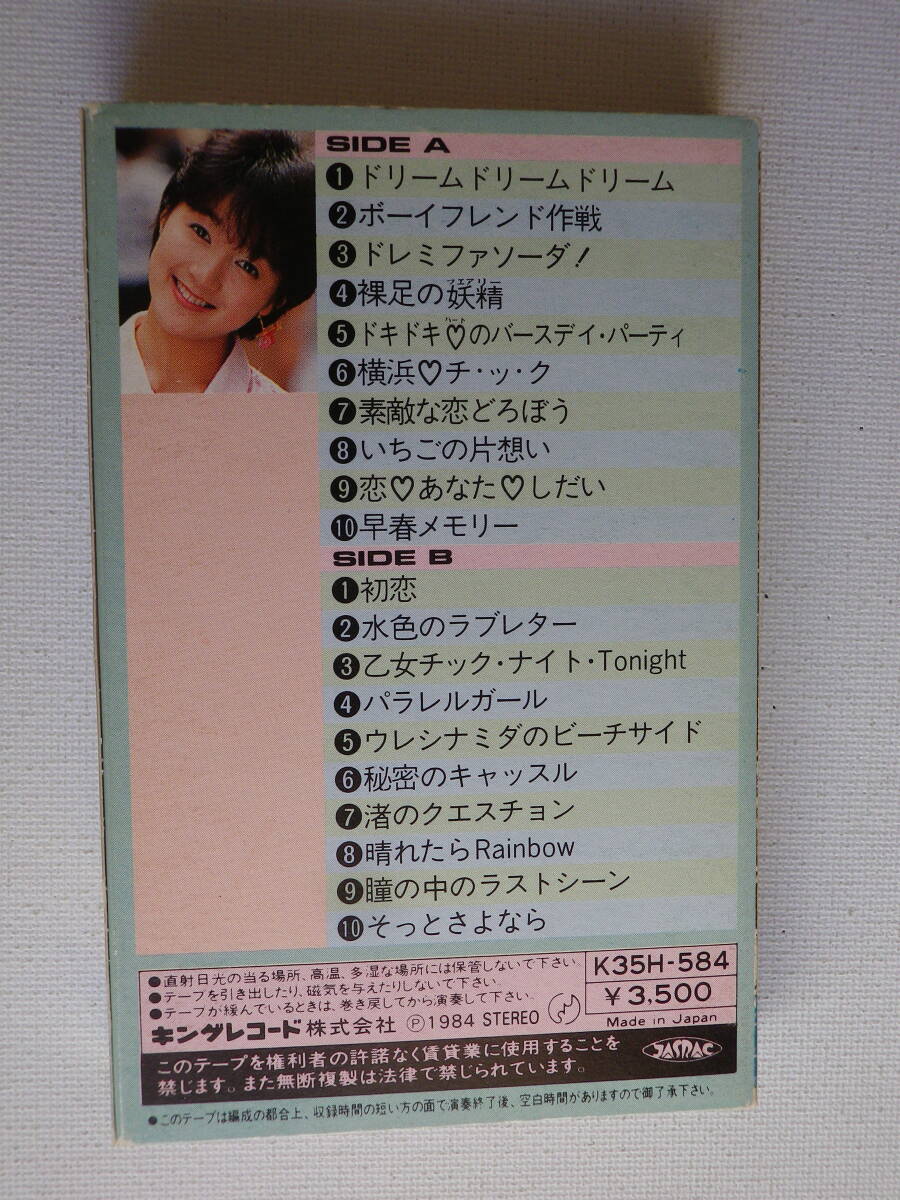 SIDE A
❶ドリームドリームドリーム
❷ボーイフレンド作戦
❸ドレミファソーダ!
❹裸足の妖精
フェアリー
❺ドキドキ♡のバースデイ・パーティ
ハート
❻横浜♡チ・ッ・ク
❼素敵な恋どろぼう
❽いちごの片想い
❾恋♡あなた♡しだい
❿早春メモリー
SIDE B
❶初恋
❷水色のラブレター
❸乙女チック・ナイト・Tonight
❹パラレルガール
❺ウレシナミダのビーチサイド
❻秘密のキャッスル
❼渚のクエスチョン
❽晴れたらRainbow
❾瞳の中のラストシーン
❿そっとさよなら
●直射日光の当る場所、高温、多湿な場所には保管しないで下さい。
●テープを引き出したり、磁気を与えたりしないで下さい。
●テープが緩んでいるときは、巻き戻してから演奏して下さい。
キングレコード株式会社 Ⓟ1984 STEREO
K35H-584
¥3,500
Made in Japan
このテープを権利者の許諾なく賃貸業に使用することを
禁じます。また無断複製は法律で禁じられています。
JASRAC
●このテープは編成の都合上、収録時間の短い方の面で演奏終了後、空白時間がありますので御了承下さい。